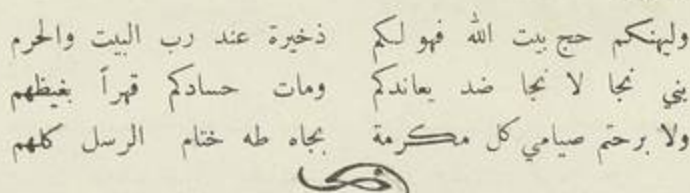 وليهنكم حج بيت الله فهو لكم ذخيرة عند رب البيت والحرم
بني نجا لا نجا ضد يعاندكم ومات حسادكم قهراً بغيظهم
ولا برحتم صيامي كل مكرمة بجاه طه ختام الرسل كلهم